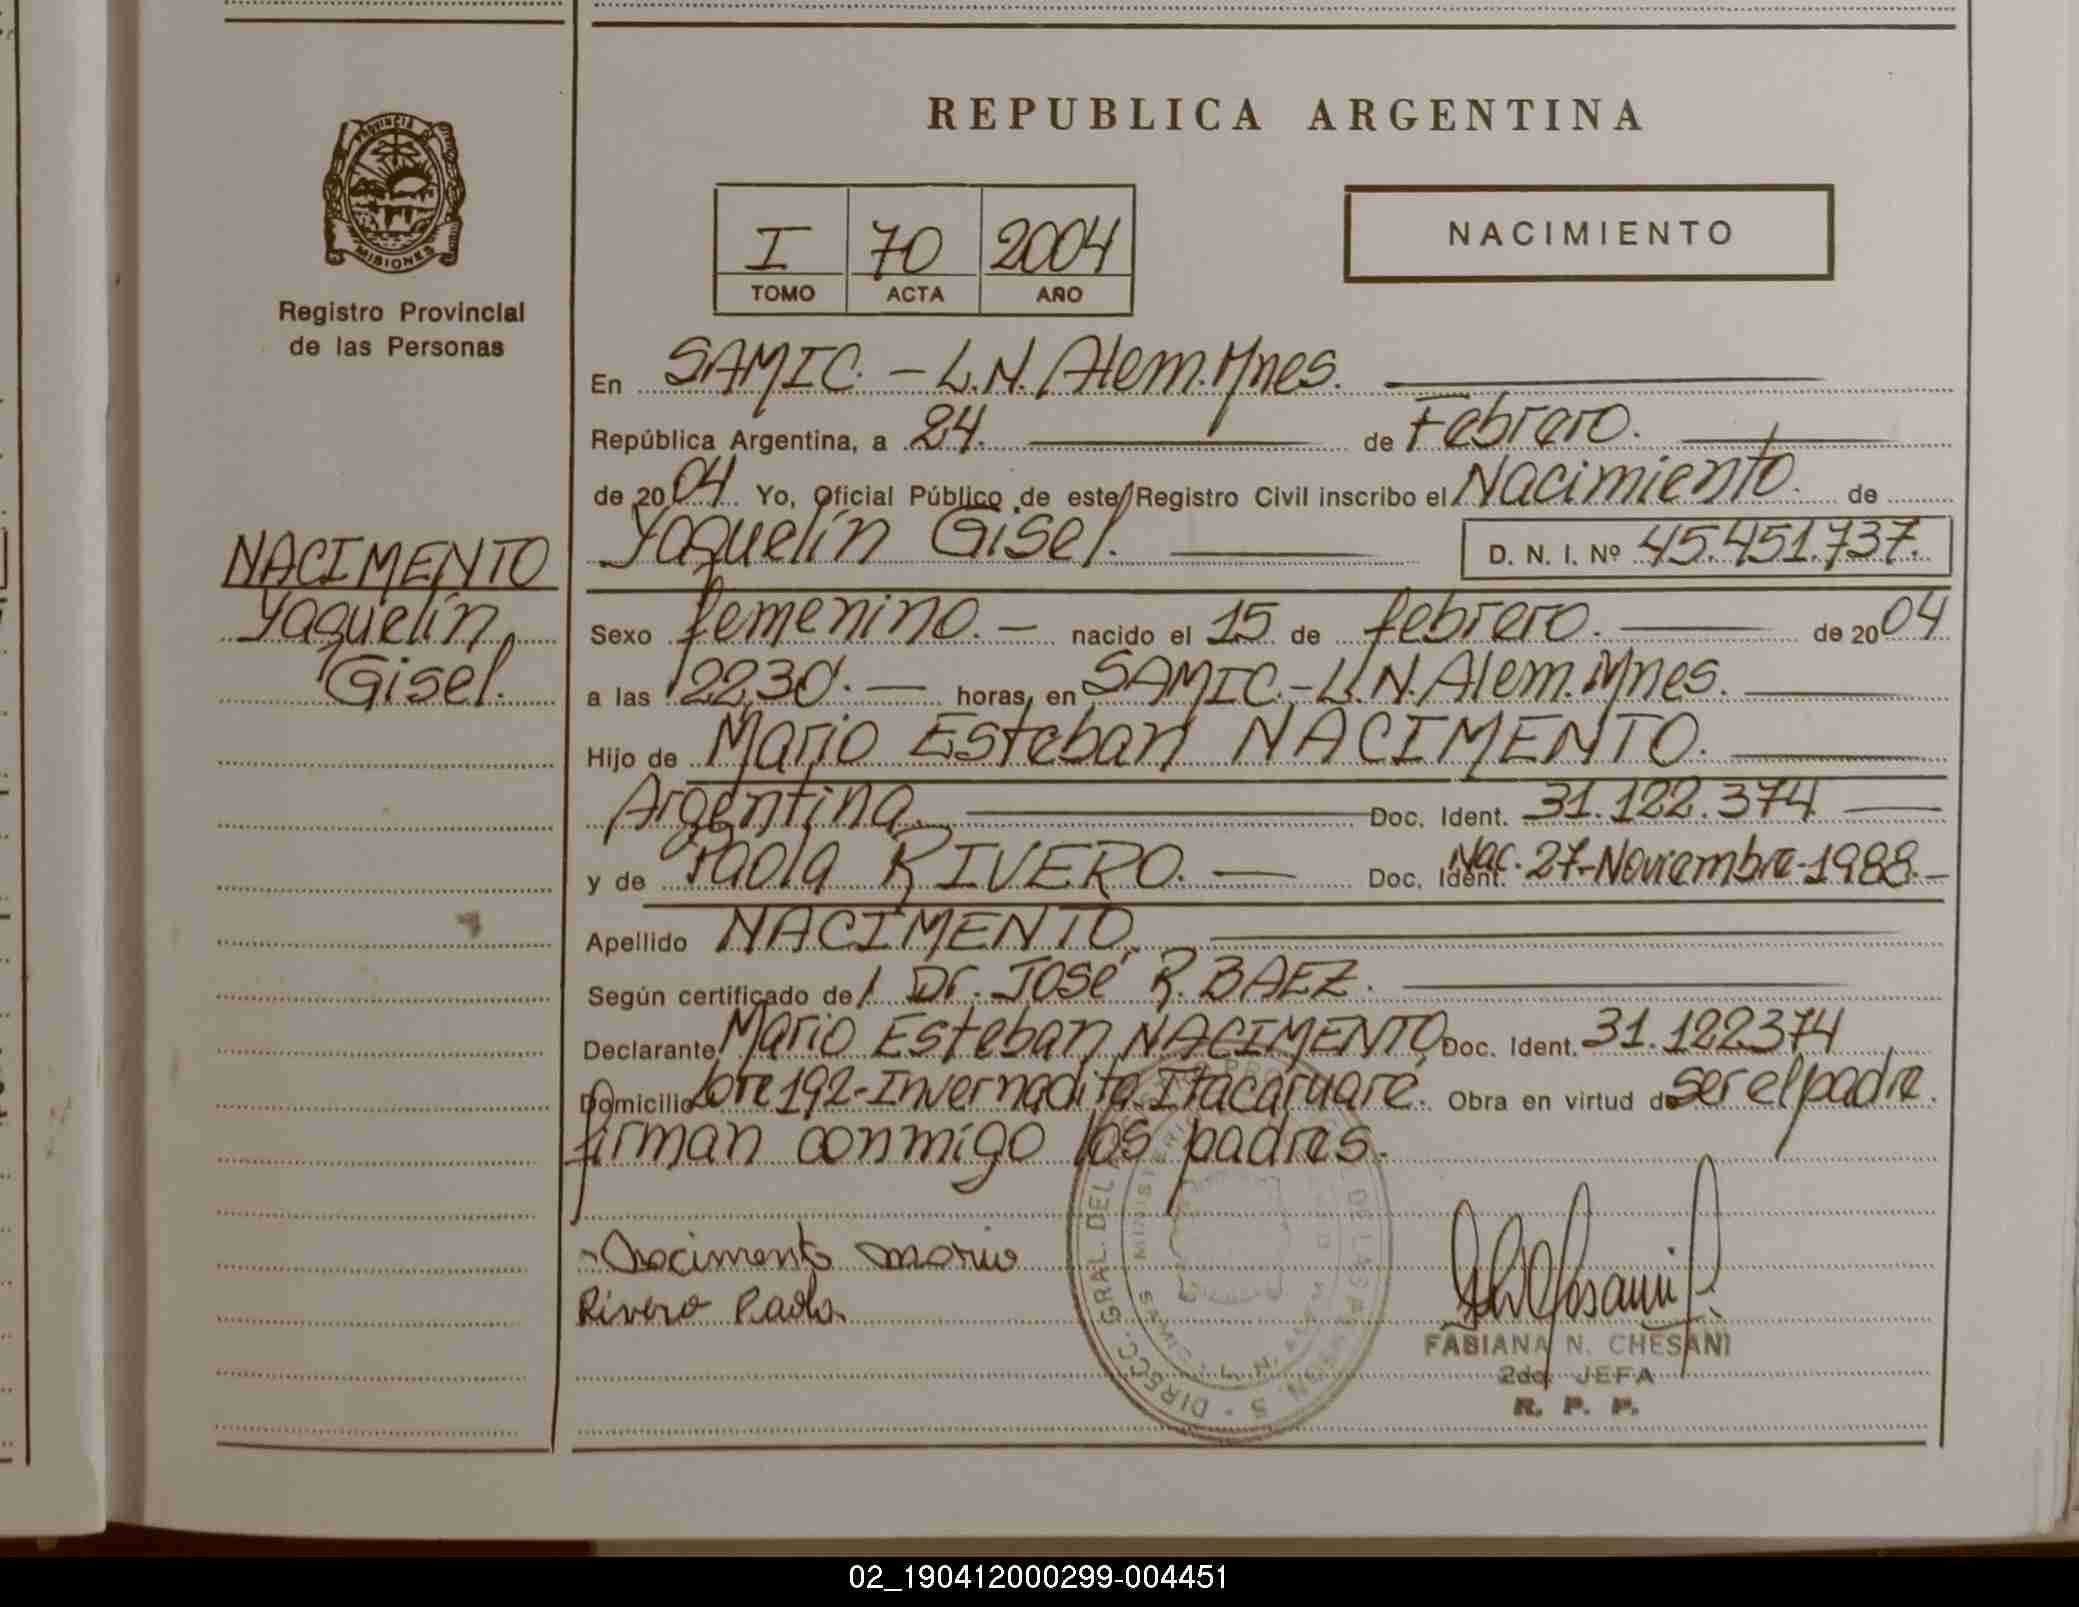 REPUBLICA ARGENTINA
PROVINCIA
MISIONES
Registro Provincial
de las Personas
I 70 2004
TOMO ACTA AÑO
NACIMIENTO
En SAMIC. - L.N. Alem. Mnes.
República Argentina, a 24. de Febrero.
de 2004 Yo, Oficial Público de este Registro Civil inscribo el Nacimiento. de
Yaquelín Gisel. D. N. I. Nº 45.451.737.
NACIMENTO
Yaquelín
Gisel.
Sexo femenino. - nacido el 15 de febrero. de 2004
a las 22,30. horas, en SAMIC.- L.N. Alem. Mnes.
Hijo de Mario Esteban NACIMENTO.
Argentina. Doc. Ident. 31.122.374
y de Paola RIVERO. Doc. Ident. Nac. 27-Noviembre-1988.-
Apellido NACIMENTO.
Según certificado de Dr. José R. BAEZ.
Declarante Mario Esteban NACIMENTO Doc. Ident. 31.122374
Domicilio Lote 192-Invernadita Itacaruaré. Obra en virtud de ser el padre.
firman conmigo los padres.
Nacimento Mario
Rivero Paola
FABIANA N. CHESANI
2da. JEFA
R. P. P.
02_190412000299-004451